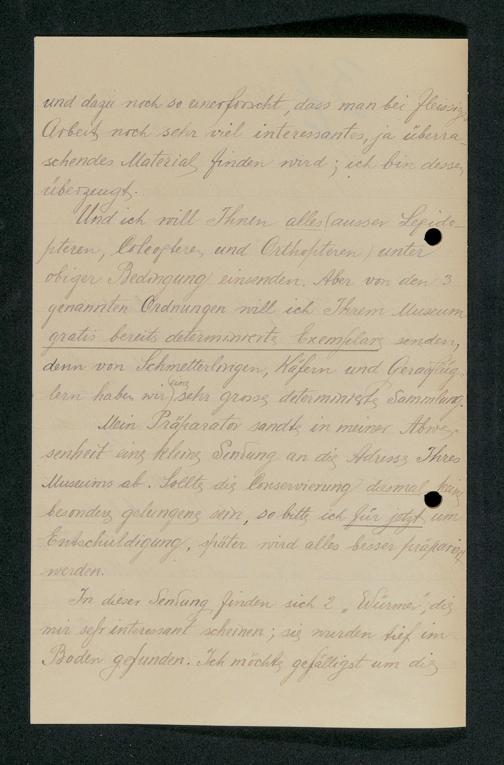 und dazu noch so unerforscht, dass man bei fleissig.
Arbeit noch sehr viel interessantes, ja überra-
schendes Material finden wird; ich bin dessen
überzeugt.
Und ich will Ihnen alles (ausser Lepido-
pteren, Coleopteren und Orthopteren) unter
obiger Bedingung einsenden. Aber von den 3
genannten Ordnungen will ich Ihrem Museum
gratis bereits determinierte Exemplare senden,
denn von Schmetterlingen, Käfern und Geradflüg-
lern haben wir eine sehr grosse determinierte Sammlung.
Mein Präparator sandte in meiner Abwe-
senheit eine kleine Sendung an die Adresse Ihres
Museums ab. Sollte die Conservierung desmal keine
besonders gelungene sein, so bitte ich für jetzt um
Entschuldigung, später wird alles besser präpariert
werden.
In dieser Sendung finden sich 2 „Würmer", die
mir sehr interessant scheinen; sie wurden tief im
Boden gefunden. Ich möchte gefälligst um die